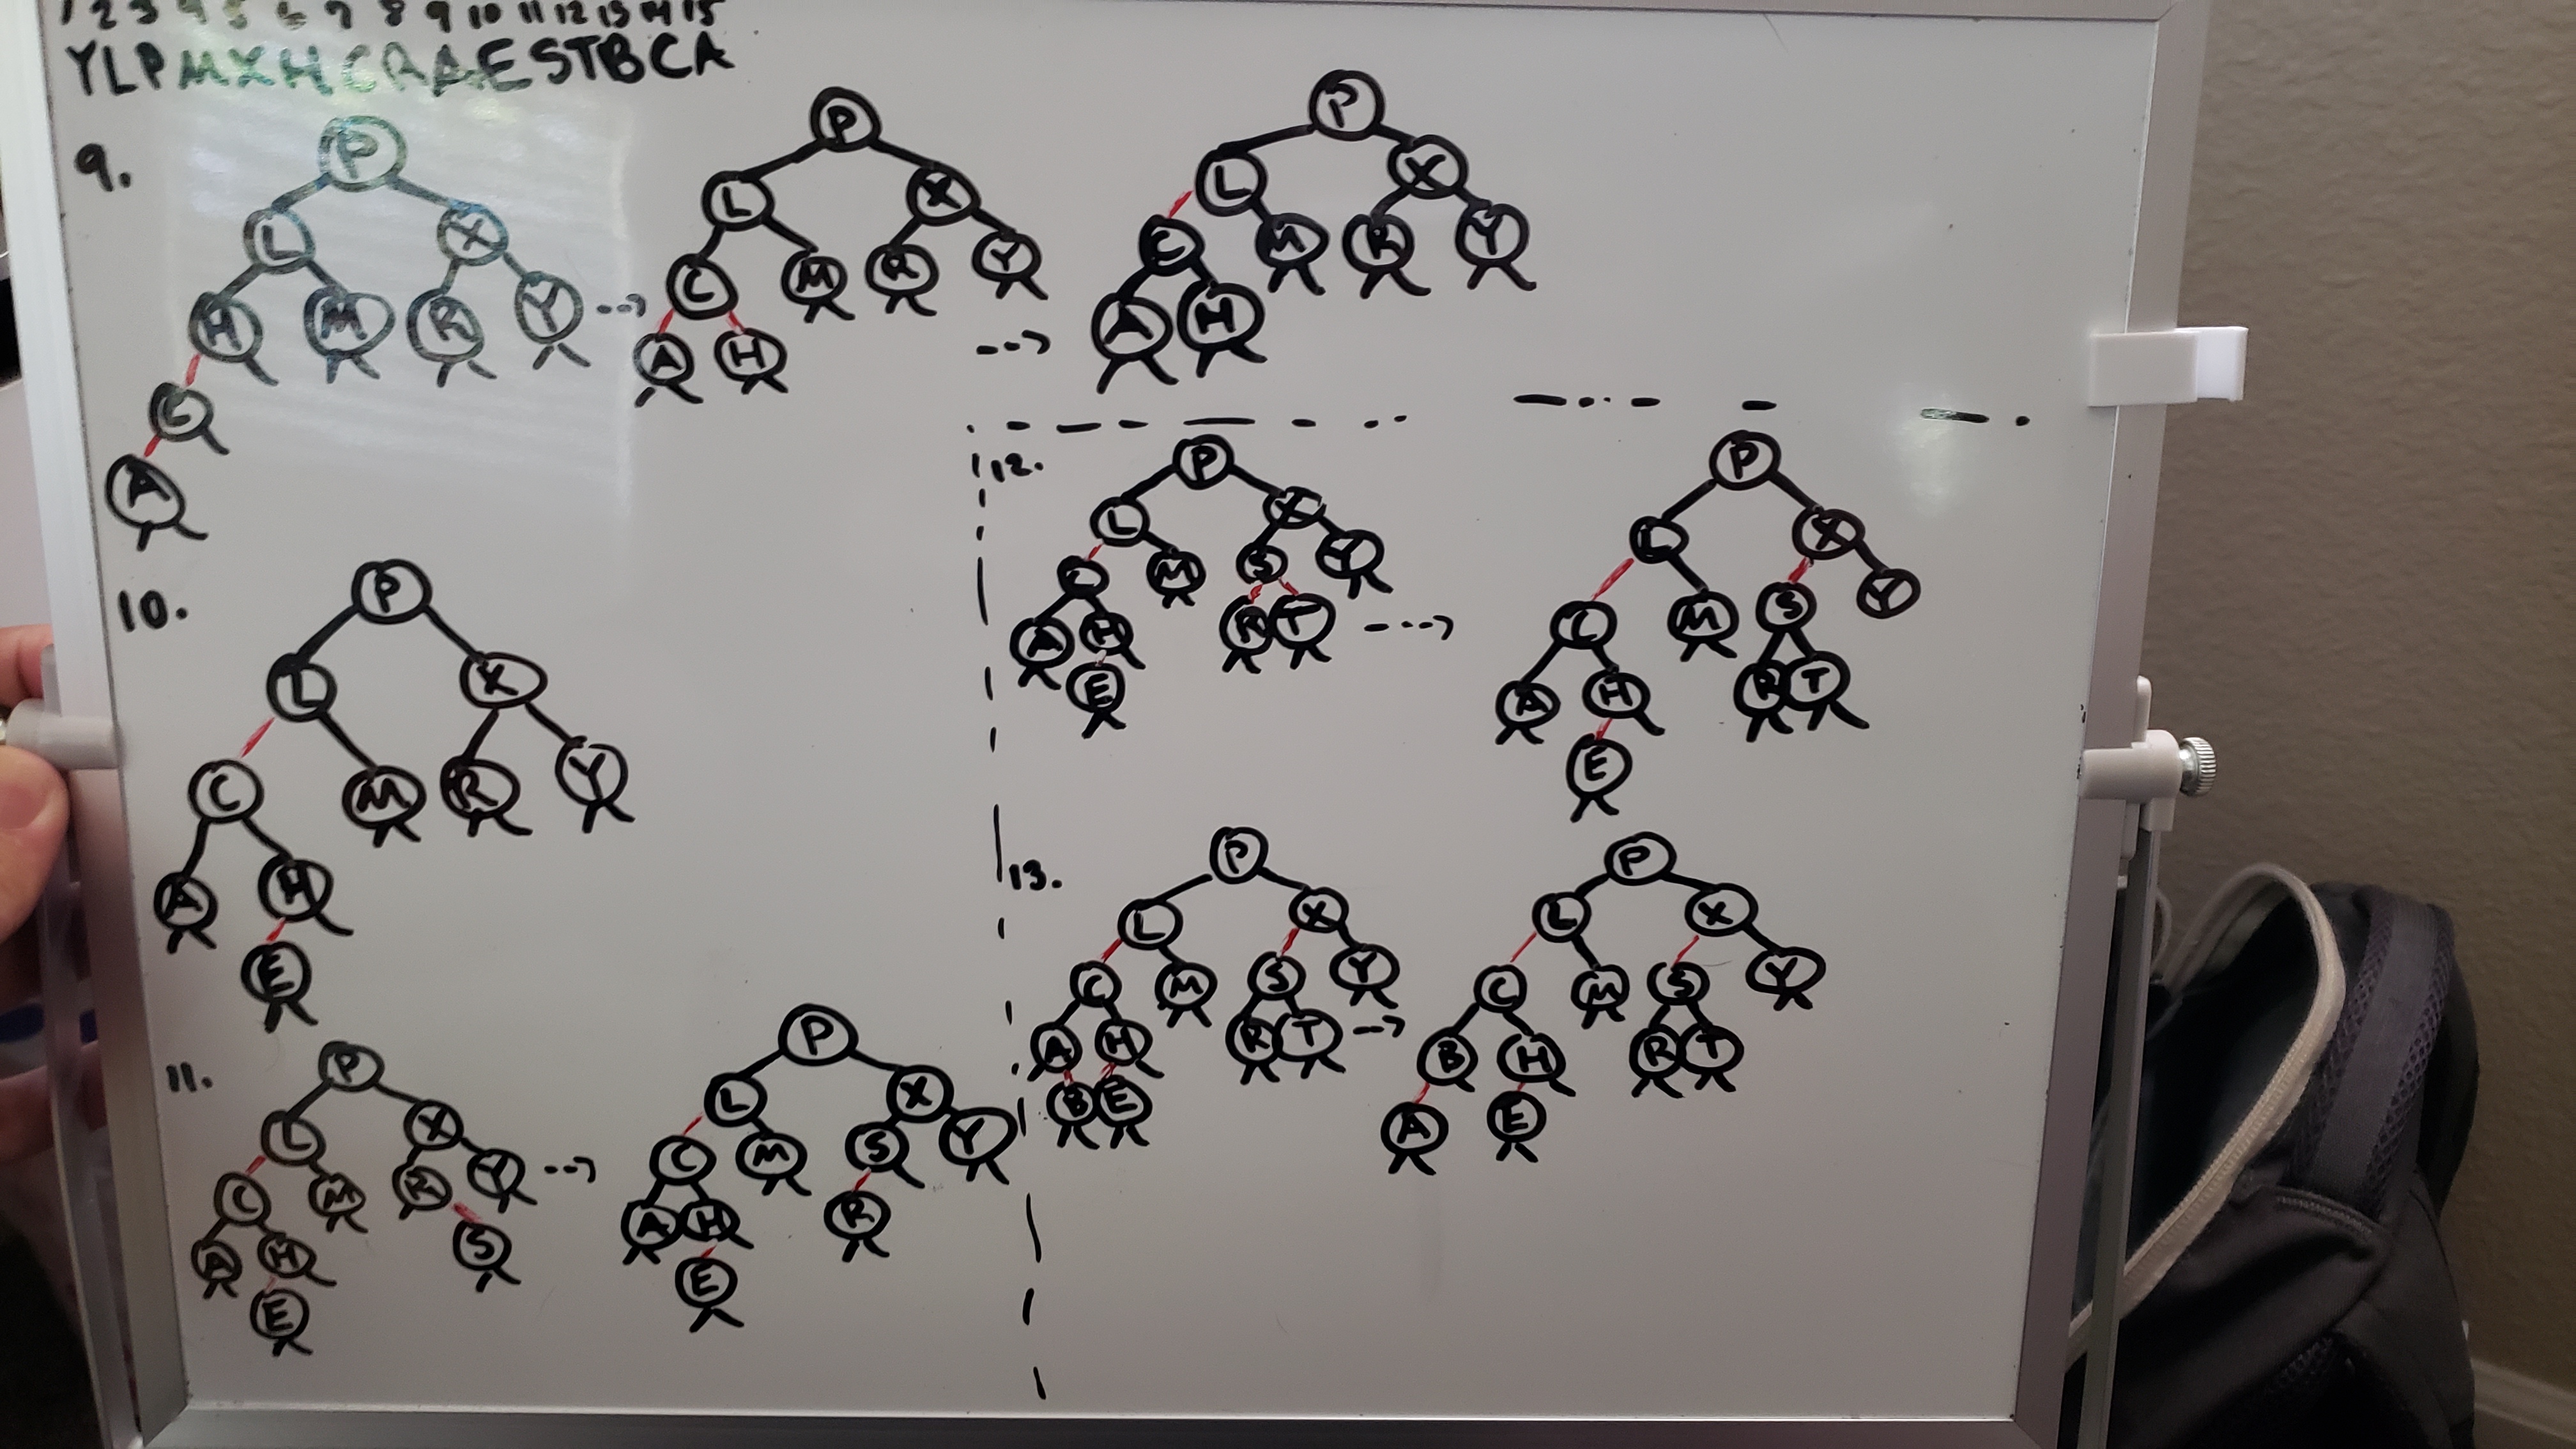 1 2 3 4 5 6 7 8 9 10 11 12 13 14 15
YLPMXHCRAESTBCA
9.
P
L X
H M R Y
C
A
P
L X
C M R Y
A H
P
L X
C M R Y
A H
10.
P
L X
C M R Y
A H
E
11.
P
L X
C M R Y
A H S
E
P
L X
C M S Y
A H R
E
12.
P
L X
C M S Y
A H R T
E
P
L X
C M S Y
A H R T
E
13.
P
L X
C M S Y
A H R T
B E
P
L X
C M S Y
B H R T
A E